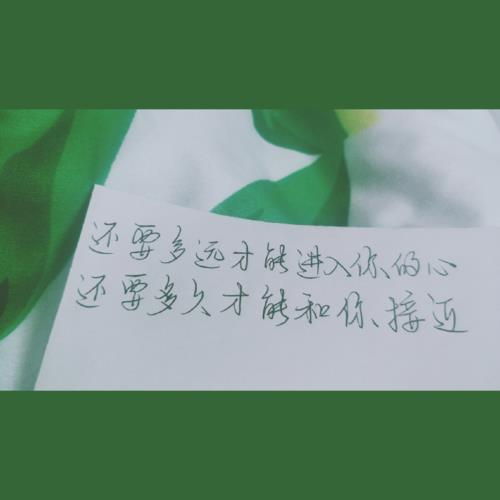 还要多远才能进入你的心
还要多久才能和你接近